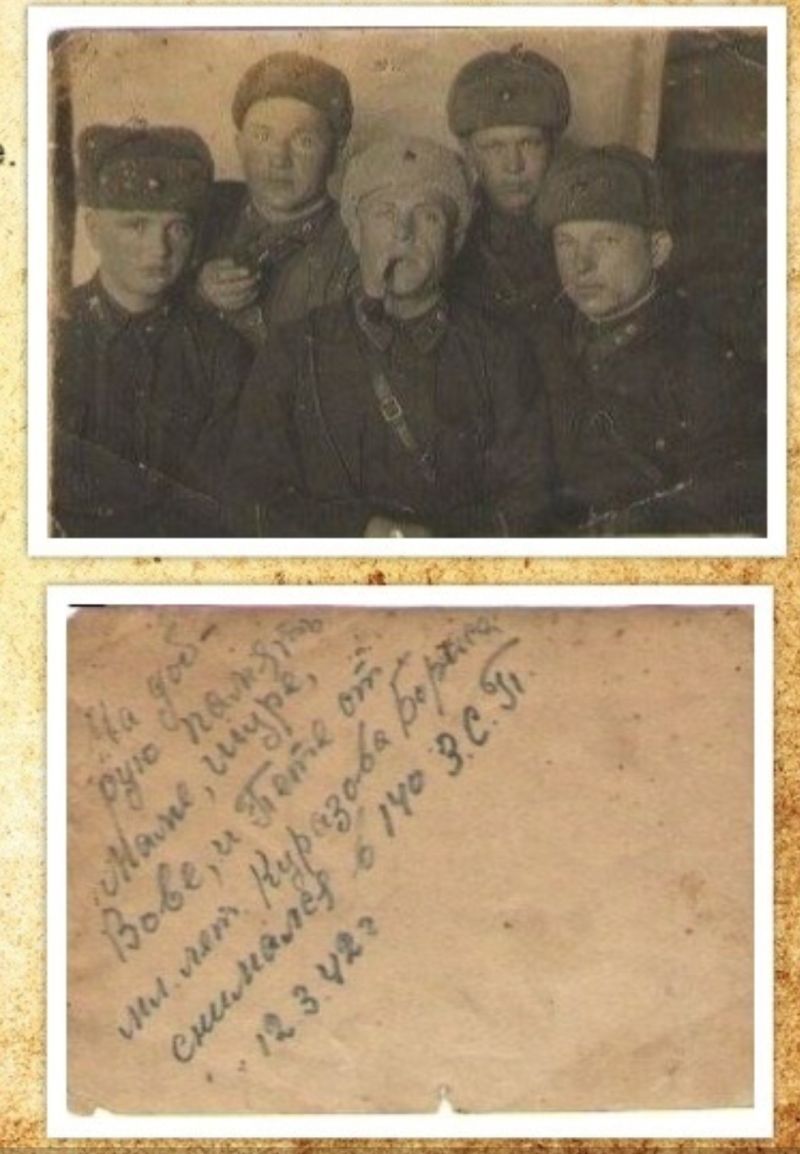 е.
На доб-
рую память
Маме, Шуре,
Вове, и Пете от
мл. лет. Куразова Бориса
снимался в 140 З.С.П.
12.3.42г